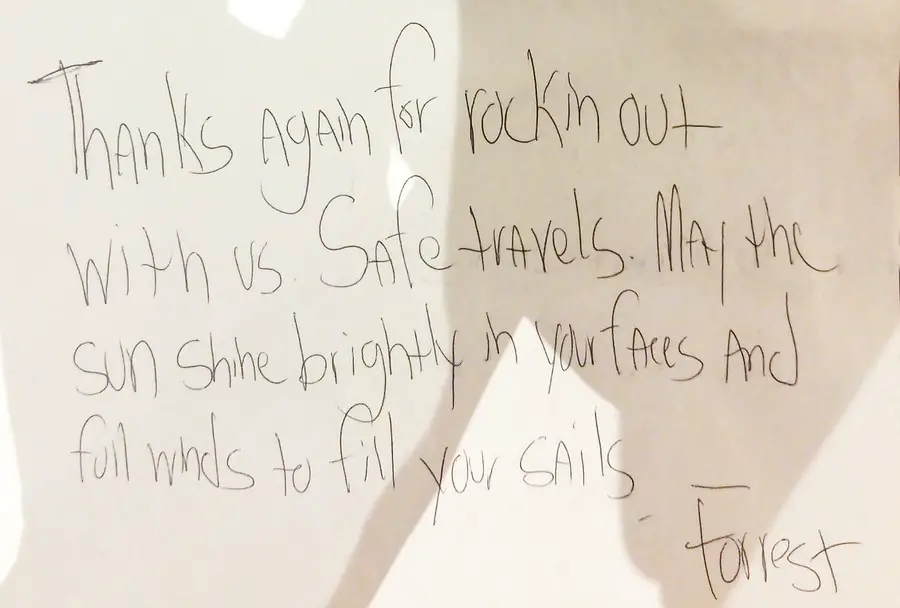 Thanks Again for rockin out
with us. Safe travels. May the
sun shine brightly in your faces And
full winds to fill your sails
- Forrest